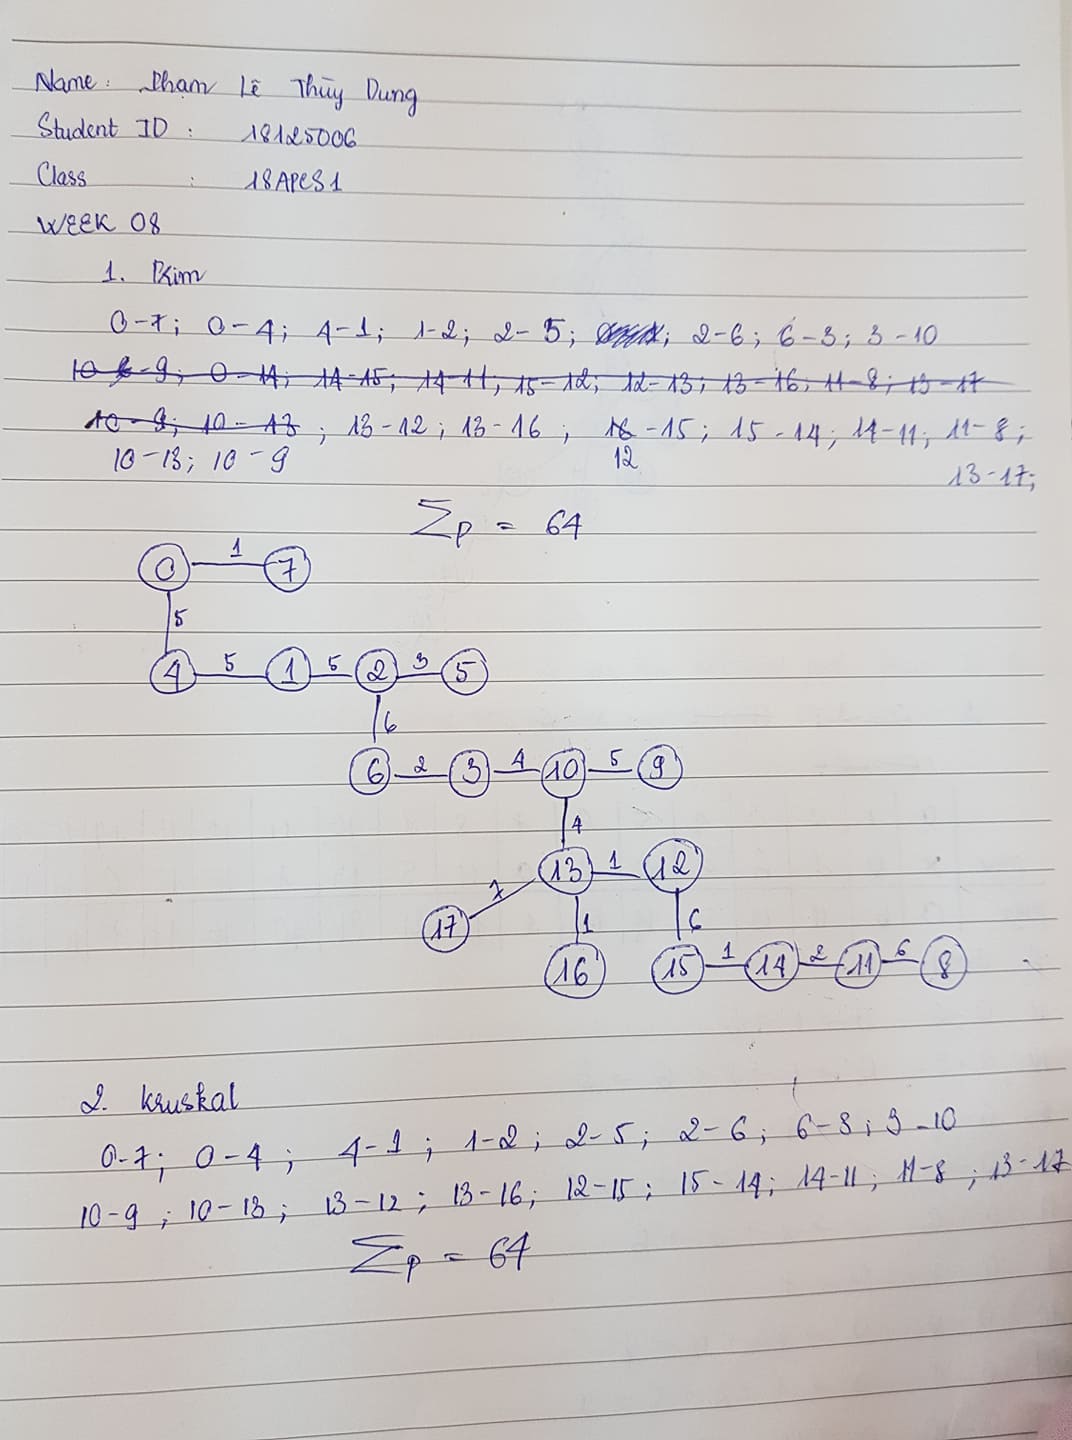 Name: Phạm Lê Thùy Dung
Student ID : 18125006
Class : 18APCS1
WEEK 08
1. Prim
0-7; 0-4; 4-1; 1-2; 2-5; ; 2-6; 6-3; 3-10
10-9; 0-14; 14-15; 14-11; 15-12; 12-13; 13-16; 11-8; 13-17
10-9; 10-13; 13-12; 13-16; -15; 15-14; 14-11; 11-8;
10-13; 10-9 12 13-17;
Σp = 64
0 1 7
5
4 5 1 5 2 3 5
6
6 2 3 4 10 5 9
4
13 1 12
7
17 1 6
16 15 1 14 2 11 6 8
2. Kruskal
0-7; 0-4; 4-1; 1-2; 2-5; 2-6; 6-3; 3-10
10-9; 10-13; 13-12; 13-16; 12-15; 15-14; 14-11; 11-8; 13-17
Σp = 64